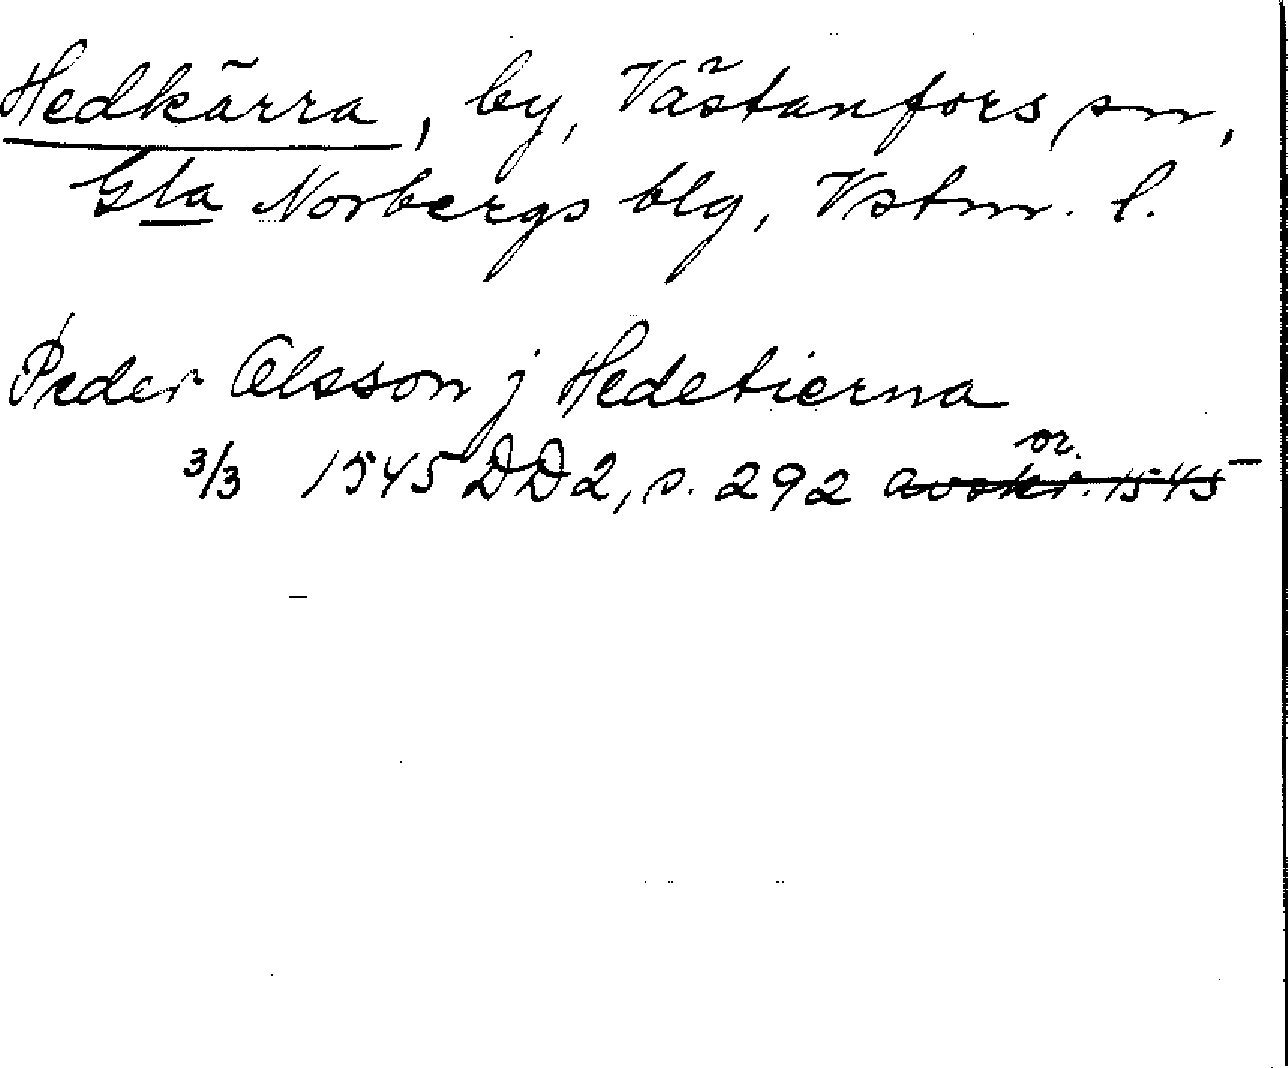 Hedkärra, by, Västanfors sn,
Gla Norbergs blg, Vstm. l.
Peder Olsson j Hedetierna
or.
3/3 1545 DD2, s. 292 avskr. 1545